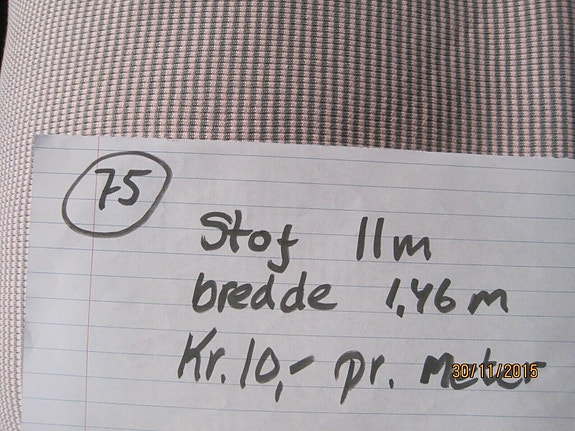 75
Stof 11m
bredde 1,46 m
Kr. 10,- pr. Meter
30/11/2015